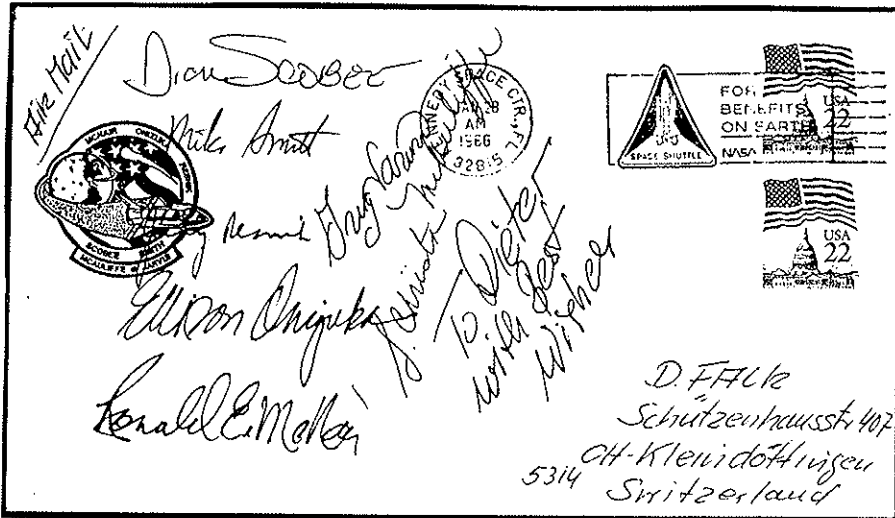 Air Mail
Dick Scobee
Mike Smith
Judy Resnik
Ellison Onizuka
Ronald E. McNair
Greg Jarvis
S. Christa McAuliffe
To Dieter
with Best
Wishes
McNAIR ONIZUKA
RESNIK
SCOBEE SMITH
McAULIFFE JARVIS
KENNEDY SPACE CTR., FL
JAN 28
AM
1986
32815
SPACE SHUTTLE
FOR
BENEFITS
ON EARTH
NASA
USA
22
USA
22
D. FALK
Schützenhausstr. 407
CH-Kleindöttingen
5314
Switzerland